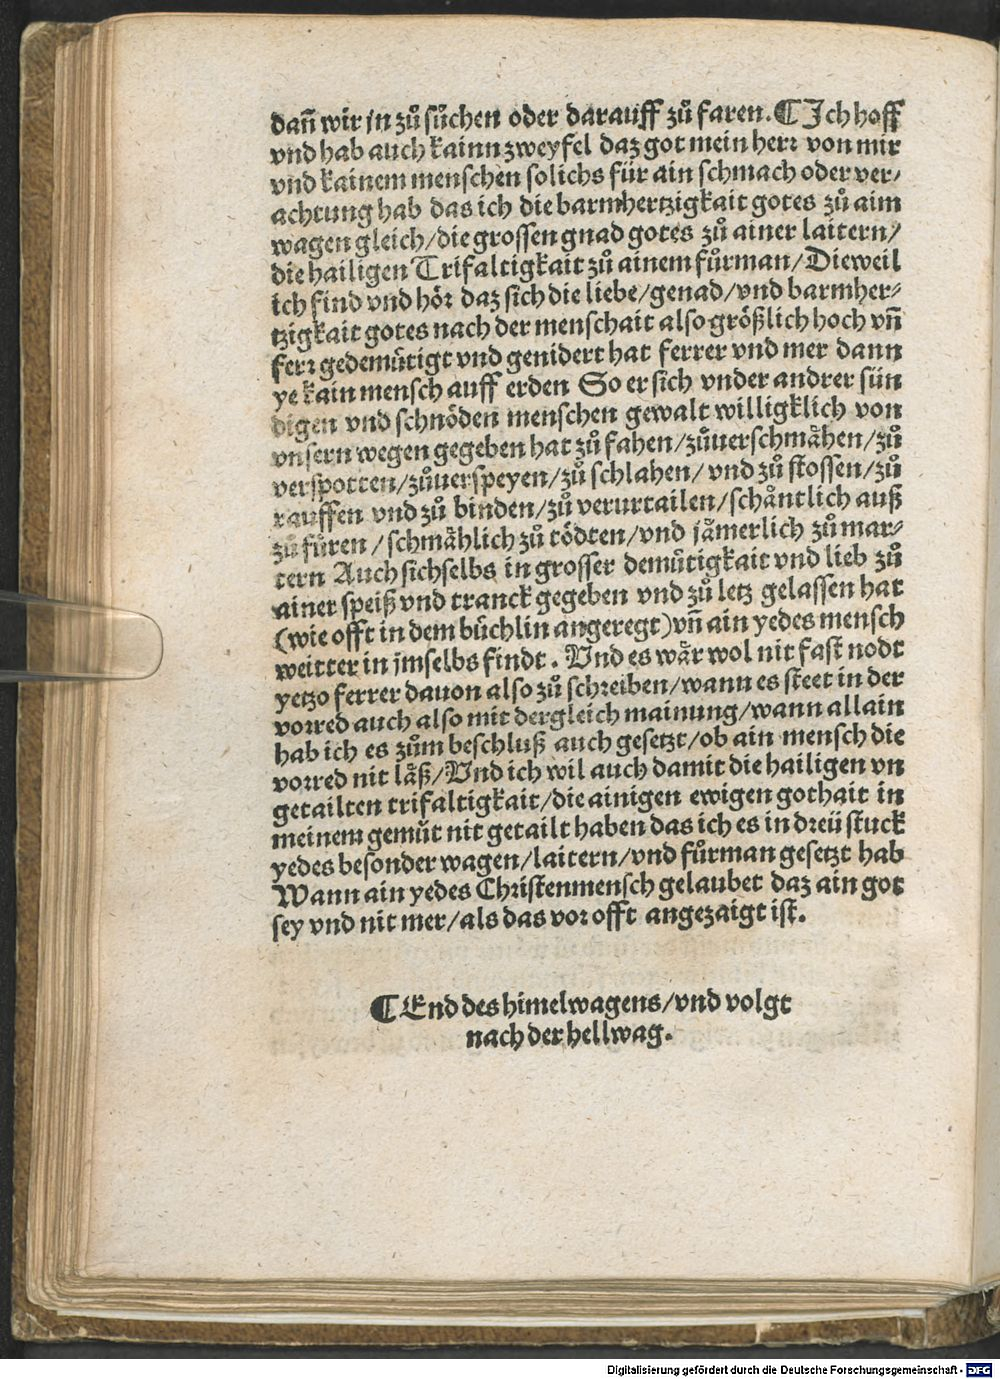 dañ wir jn zů sůchen oder darauff zů faren. ¶ Jch hoff
vnd hab auch kainn zweyfel daz got mein herꝛ von mir
vnd kainem menschen solichs für ain schmach oder ver⸗
achtung hab das ich die barmhertzigkait gotes zů aim
wagen gleich/die grossen gnad gotes zů ainer laitern/
die hailigen Trifaltigkait zů ainem fůrman/Dieweil
ich find vnd höꝛ daz sich die liebe/genad/vnd barmher⸗
tzigkait gotes nach der menschait also größlich hoch vñ
ferꝛ gedemütigt vnd genidert hat ferrer vnd mer dann
ye kain mensch auff erden So er sich vnder andrer sün
digen vnd schnöden menschen gewalt willigklich von
vnsern wegen gegeben hat zů fahen/zůuerschmåhen/zů
verspotten/zůuerspeyen/zů schlahen/vnd zů stossen/zů
rauffen vnd zů binden/zů verurtailen/schåntlich auß
zů fůren/schmåhlich zů tödten/vnd jåmerlich zů mar⸗
tern Auch sichselbs in grosser demůtigkait vnd lieb zů
ainer speiß vnd tranck gegeben vnd zů letz gelassen hat
(wie offt in dem büchlin angeregt)vñ ain yedes mensch
weitter in jmselbs findt. Vnd es wår wol nit fast nodt
yetzo ferrer dauon also zů schꝛeiben/wann es steet in der
voꝛred auch also mit dergleich mainung/wann allain
hab ich es zům beschluß auch gesetzt/ob ain mensch die
voꝛred nit låß/Vnd ich wil auch damit die hailigen vn
getailten trifaltigkait/die ainigen ewigen gothait in
meinem gemůt nit getailt haben das ich es in dꝛeü stuck
yedes besonder wagen/laitern/vnd fůrman gesetzt hab
Wann ain yedes Christenmensch gelaubet daz ain got
sey vnd nit mer/als das voꝛ offt angezaigt ist.
¶ End des himelwagens/vnd volgt
nach der hellwag.
Digitalisierung gefördert durch die Deutsche Forschungsgemeinschaft - DFG